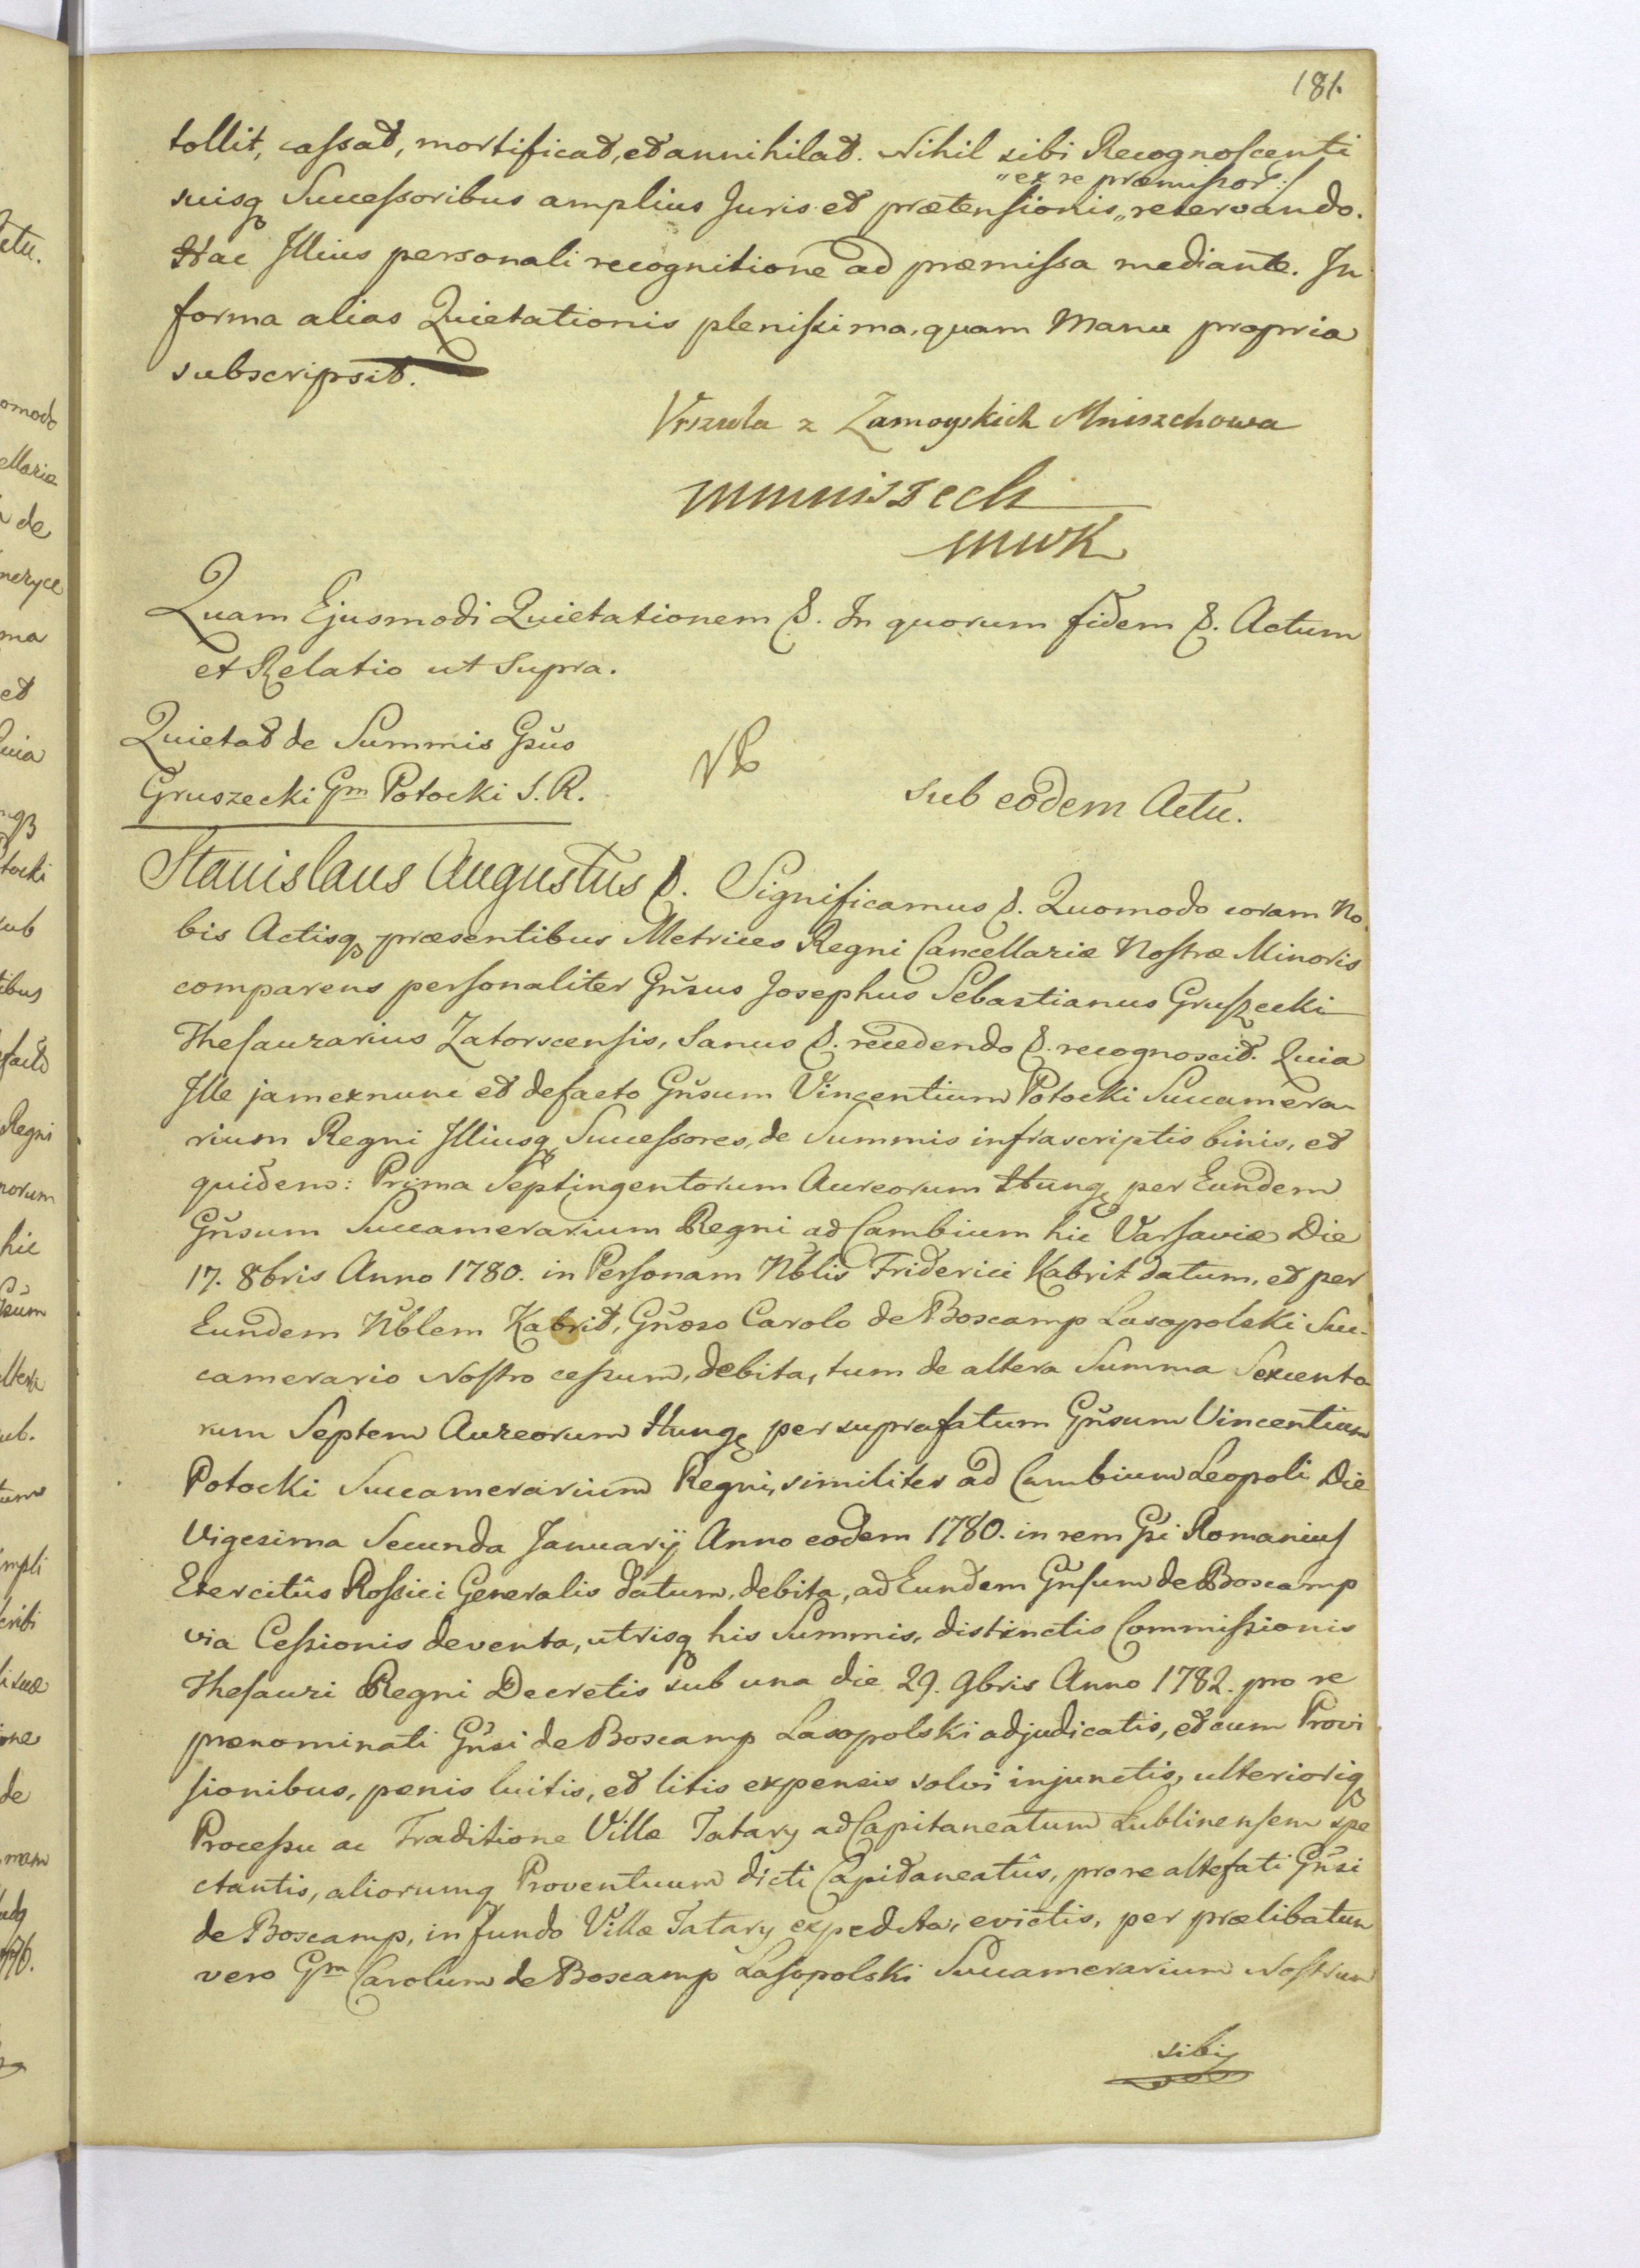 181.
tollit, cassat, mortificat, et annihilat. Nihil sibi Recognoscenti
"ex re præmissor:
suisq Successoribus amplius Juris et prætensionis,, reservando.
Hac Illius personali recognitione ad præmissa mediante. In
forma alias Quietationis plenissima, quam Manu propria
subscripsit.
Vrszula z Zamoyskich Mniszchowa
mmniszech
MWK
Quam Ejusmodi Quietationem &. In quorum fidem &. Actum
et Relatio ut Supra.
Quietat de Summis Gsus
Gruszecki Gm Potocki S. R.
sub eodem Actu.
Stanislaus Augustus &. Significamus &. Quomodo coram No
bis Actisq præsentibus Metrices Regni Cancellariæ Nostræ Minoris
comparens personaliter Gnsus Josephus Sebastianus Gruszecki
Thesaurarius Zatorscensis, Sanus &. recedendo &. recognoscit. Quia
Ille jam exnunc et defacto Gnsum Vincentium Potocki Succamera-
rium Regni Illiusq Successores, de Summis infrascriptis binis, et
quidem: Prima Septingentorum Aureorum Hung. per Eundem
Gnsum Succamerarium Regni ad Cambium hic Varsaviæ Die
17. 8bris Anno 1780. in Personam Nblis Friderici Kabrit datum, et per
Eundem Nblem Kabrit, Gnoso Carolo de Boscamp Lasopolski Suc-
camerario Nostro cessum, debita, tum de altera Summa Sexcento
rum Septem Aureorum Hung. per suprafatum Gnsum Vincentium
Potocki Succamerarium Regni, similiter ad Cambium Leopoli Die
Vigesima Secunda Januarij Anno eodem 1780. in rem Gsi Romanius
Exercitûs Rossici Generalis datum, debita, ad Eundem Gnsum de Boscamp
via Cessionis deventa, utrisq his Summis, distinctis Commissionis
Thesauri Regni Decretis sub una die 29. 9bris Anno 1782. pro re
prænominati Gnsi de Boscamp Lasopolski adjudicatis, et cum Provi
sionibus, penis luitis, et litis expensis solvi injunctis, ulterioriq
Processu ac Traditione Villæ Tatary ad Capitaneatum Lublinensem spe
ctantis, aliorumq Proventuum dicti Capitaneatûs, pro re altefati Gnsi
de Boscamp, in fundo Villæ Tatary expedita, evictis, per prælibatum
vero Gm Carolum de Boscamp Lasopolski Succamerarium Nostrum
sibi